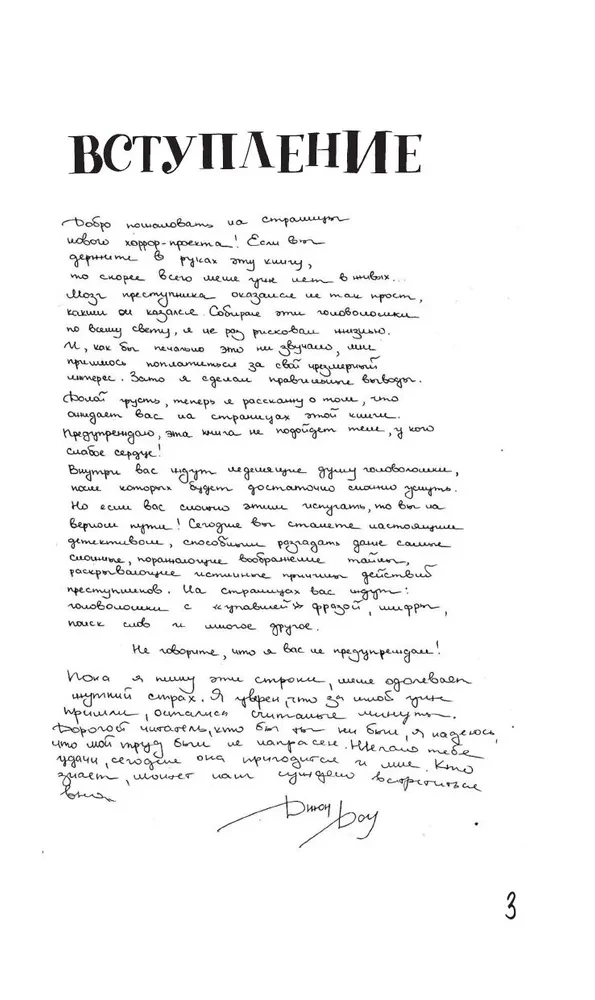 ВСТУПЛЕНИЕ
Добро пожаловать на страницы
нового хоррор-проекта! Если вы
держите в руках эту книгу,
то скорее всего меня уже нет в живых...
Мозг преступника оказался не так прост,
каким он казался. Собирая эти головоломки
по всему свету, я не раз рисковал жизнью.
И, как бы печально это ни звучало, мне
пришлось поплатиться за свой чрезмерный
интерес. Зато я сделал правильные выводы.
Долой грусть, теперь я расскажу о том, что
ожидает вас на страницах этой книги.
Предупреждаю, эта книга не подойдет тем, у кого
слабое сердце!
Внутри вас ждут леденящие душу головоломки,
после которых будет достаточно сложно уснуть.
Но если вас сложно этим испугать, то вы на
верном пути! Сегодня вы станете настоящим
детективом, способным разгадать даже самые
сложные, поражающие воображение тайны,
раскрывающие истинные причины действий
преступников. На страницах вас ждут:
головоломки с «упавшей» фразой, шифры,
поиск слов и многое другое.
Не говорите, что я вас не предупреждал!
Пока я пишу эти строки, меня одолевает
жуткий страх. Я уверен, что за мной уже
пришли, остались считаные минуты.
Дорогой читатель, кто бы ты ни был, я надеюсь,
что мой труд был не напрасен. Желаю тебе
удачи, сегодня она пригодится и мне. Кто
знает, может нам суждено встретиться
Джон Доу
3